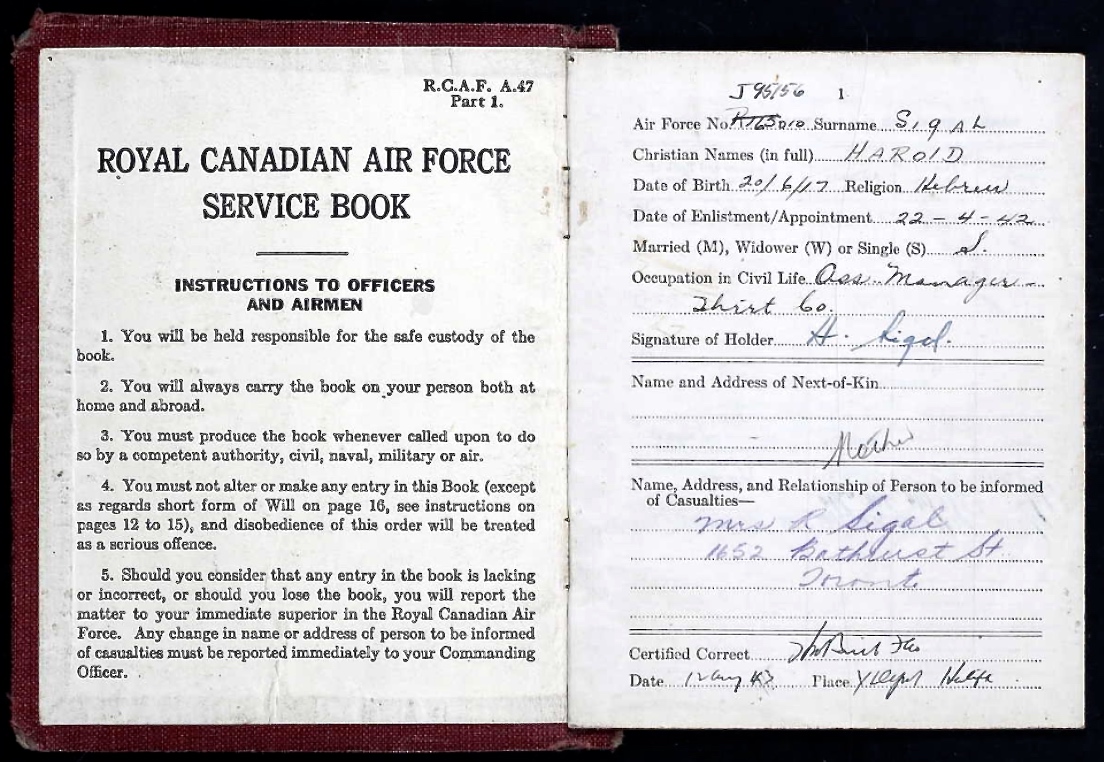 R.C.A.F. A.47
Part 1.
ROYAL CANADIAN AIR FORCE
SERVICE BOOK
INSTRUCTIONS TO OFFICERS
AND AIRMEN
1. You will be held responsible for the safe custody of the
book.
2. You will always carry the book on your person both at
home and abroad.
3. You must produce the book whenever called upon to do
so by a competent authority, civil, naval, military or air.
4. You must not alter or make any entry in this Book (except
as regards short form of Will on page 16, see instructions on
pages 12 to 15), and disobedience of this order will be treated
as a serious offence.
5. Should you consider that any entry in the book is lacking
or incorrect, or should you lose the book, you will report the
matter to your immediate superior in the Royal Canadian Air
Force. Any change in name or address of person to be informed
of casualties must be reported immediately to your Commanding
Officer.
J95156 1
Air Force No. Surname SigAL
Christian Names (in full) HAROLD
Date of Birth 20/6/17 Religion Hebrew
Date of Enlistment/Appointment 22-4-42
Married (M), Widower (W) or Single (S) S.
Occupation in Civil Life Ass. Manager -
Shirt Co.
Signature of Holder H. Sigal.
Name and Address of Next-of-Kin
Mother
Name, Address, and Relationship of Person to be informed
of Casualties—
Mrs R Sigal
1652 Bathurst St
Toronto
Certified Correct
Date Place